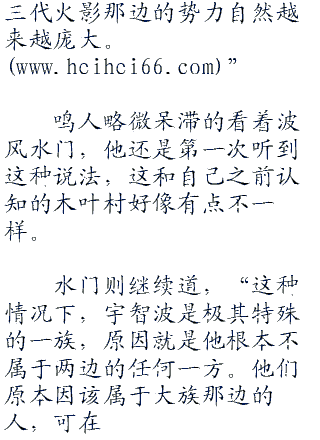 三代火影那边的势力自然越
来越庞大。
(www.hcihci66.com)”
鸣人略微呆滞的看着波
风水门，他还是第一次听到
这种说法，这和自己之前认
知的木叶村好像有点不一
样。
水门则继续道，“这种
情况下，宇智波是极其特殊
的一族，原因就是他根本不
属于两边的任何一方。他们
原本因该属于大族那边的
人，可在